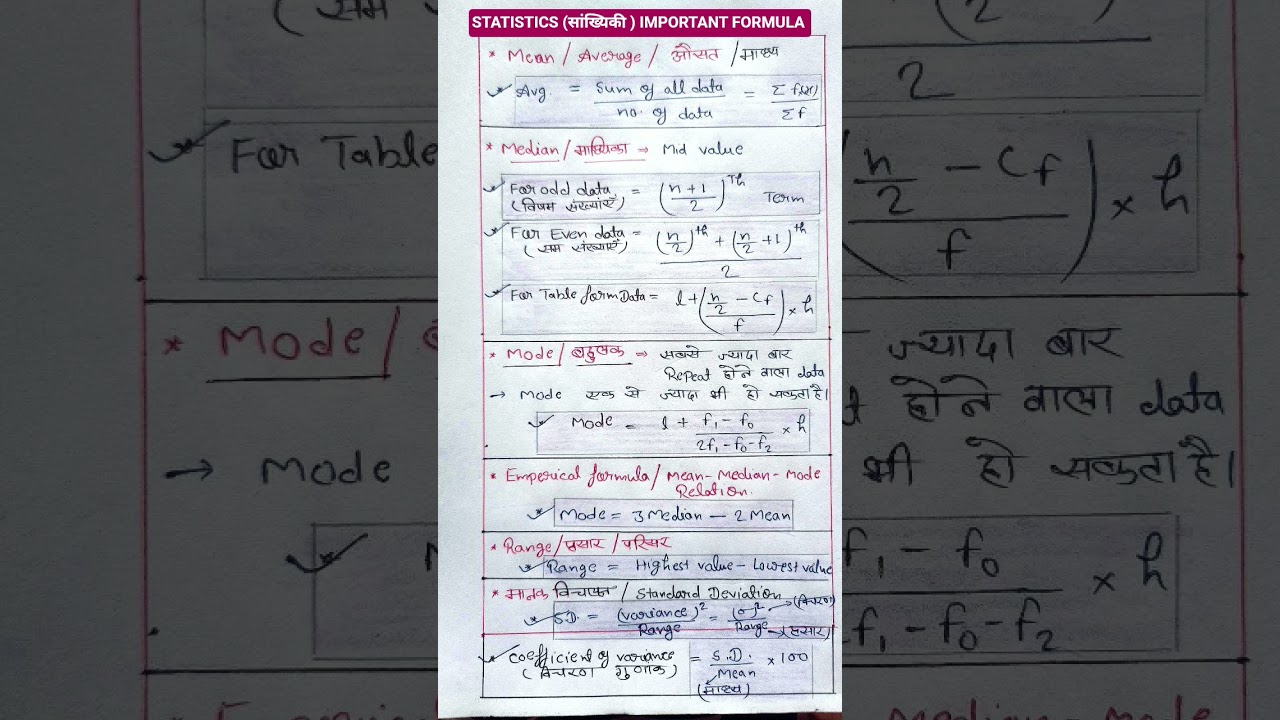 STATISTICS (सांख्यिकी ) IMPORTANT FORMULA
* Mean / Average / औसत / माध्य
Avg. = Sum of all data / no. of data = Σf(x) / Σf
* Median / माध्यिका → Mid value
For odd data (विषम संख्याएँ) = ((n+1)/2)^Th Term
For Even data (सम संख्याएँ) = ((n/2)^th + (n/2 + 1)^th) / 2
For Table form Data = l + ((n/2 - Cf) / f) × h
* Mode / बहुलक → सबसे ज्यादा बार
Repeat होने वाला data
→ Mode एक से ज्यादा भी हो सकता है।
Mode = l + (f₁ - f₀) / (2f₁ - f₀ - f₂) × h
* Emperical formula / Mean - Median - Mode
Relation.
Mode = 3 Median — 2 Mean
* Range / प्रसार / परिसर
Range = Highest value - Lowest value
* मानक विचलन / Standard Deviation
S.D. = (variance)² / Range = (σ)² / Range → (विचरण) → (प्रसार)
coefficient of variance (विचरण गुणांक) = S.D. / Mean × 100
(माध्य)